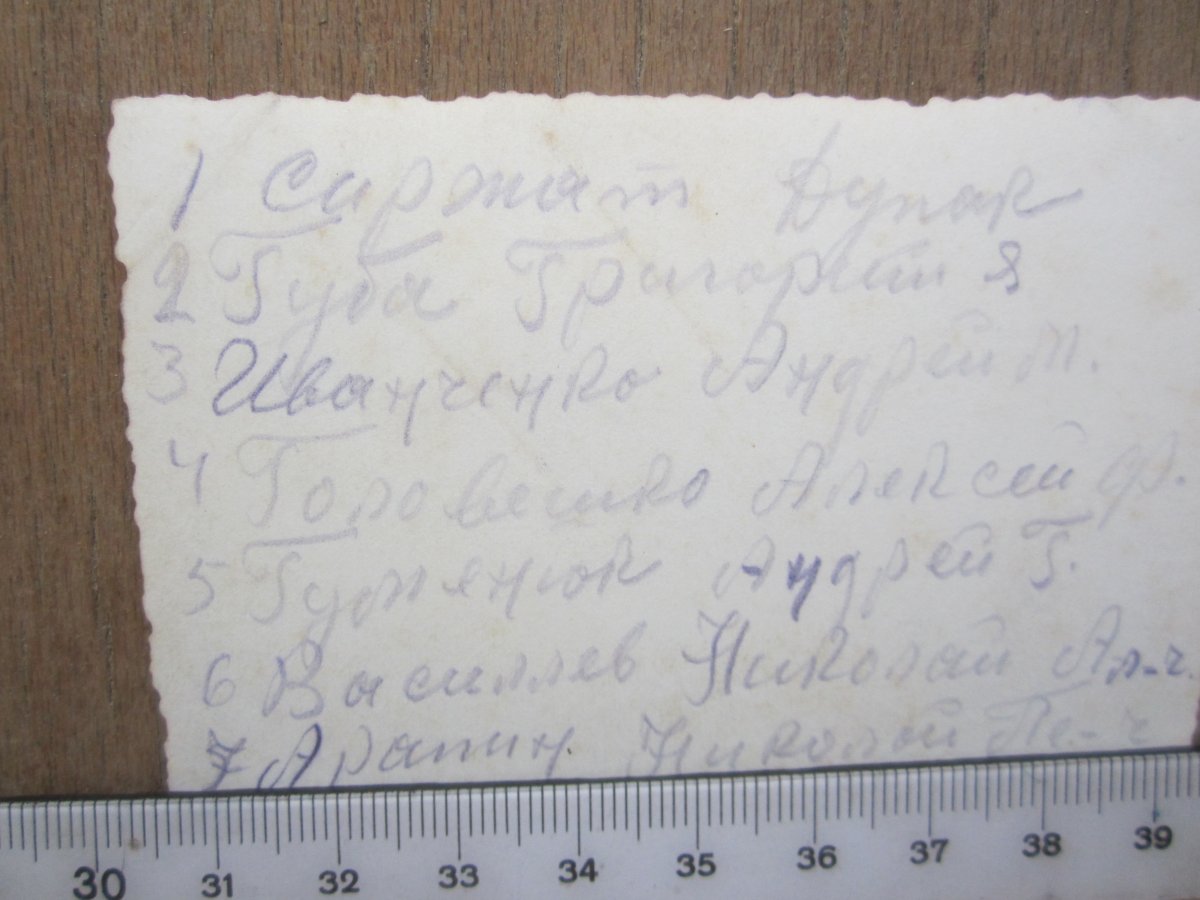 1 Сиржат Дупак
2 Губа Григорий Я
3 Иванченко Андрей М.
4 Головешко Алексей Ф.
5 Гуменюк Андрей Г.
6 Василлев Николай Ал-ч.
7 Арапин Николай Пе-ч
30 31 32 33 34 35 36 37 38 39